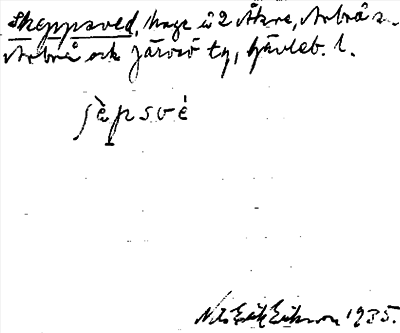 Skeppsved, hage å 2 Åkre, Arbrå sn.
Arbrå och Järvsö tg, Gävleb. l.
ʃèpsvé
Nils Erik Eriksson 1935.